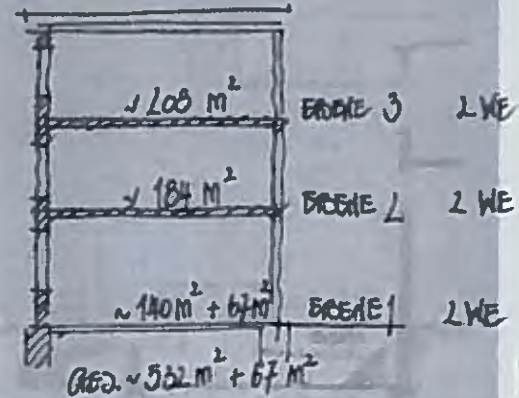 ~ 208 m² EBENE 3 2 WE
~ 184 m² EBENE 2 2 WE
~ 140 m² + 67 m² EBENE 1 2 WE
GES. ~ 532 m² + 67 m²